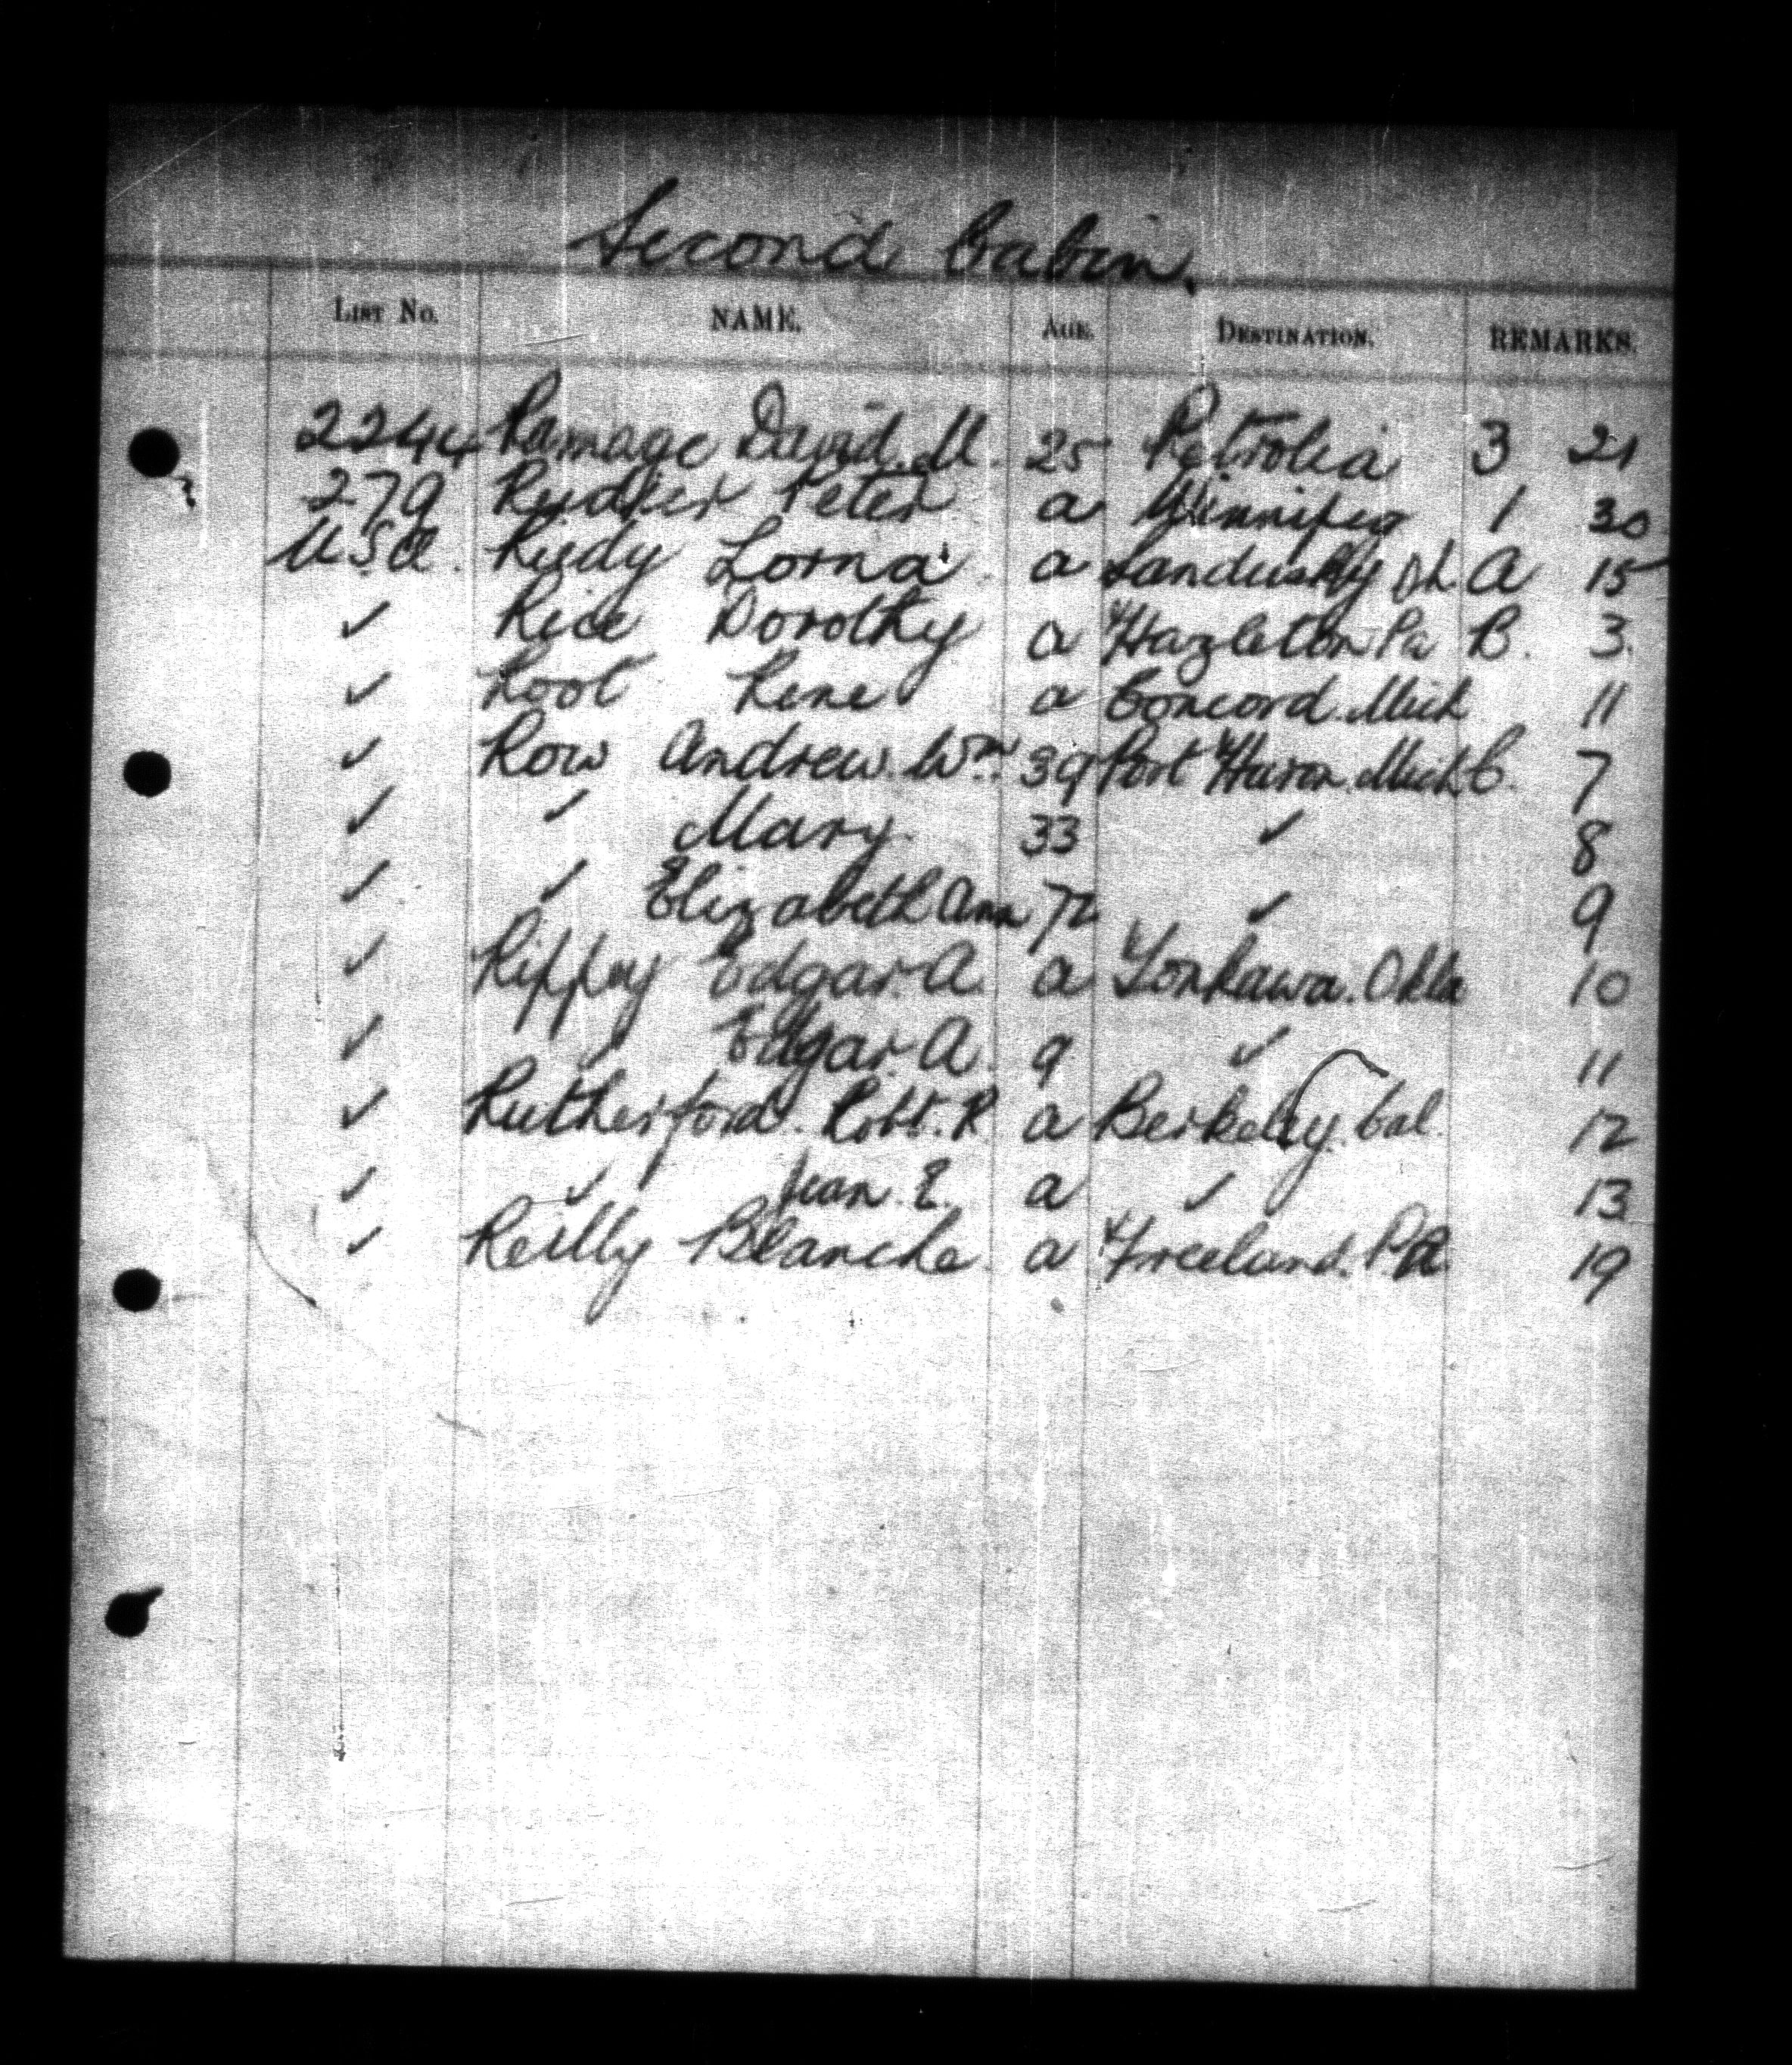 Second Cabin.
LIST NO. NAME. AGE. DESTINATION. REMARKS.
2244 Ramage David. M. 25 Petrolia 3 21
279 Peter a Winnipeg 1 30
USA. Riedy Lorna a Sandusky Oh. A 15
✓ Rice Dorothy a Hazleton Pa B. 3.
✓ Root Rene a Concord. Mich 11
✓ Row Andrew. Wm. 39 Port Huron. Mich C. 7
✓ ✓ Mary. 33 ✓ 8
✓ ✓ Elizabeth Ann 72 ✓ 9
✓ Rippey Edgar. A. a Tonkawa. Okla 10
✓ ✓ Edgar. A. 9 ✓ 11
✓ Rutherford. Robt. R. a Berkeley. Cal. 12
✓ ✓ Jean. E. a ✓ 13
✓ Reilly Blanche. a Freeland. Pa. 19